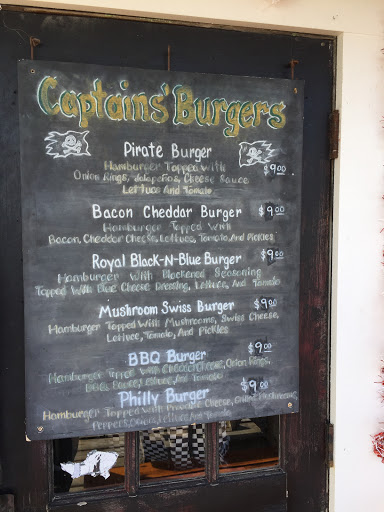 Captains' Burgers
Pirate Burger $9.00
Hamburger Topped With
Onion Rings, Jalapeños, Cheese Sauce
Lettuce And Tomato
Bacon Cheddar Burger $9.00
Hamburger Topped With
Bacon, Cheddar Cheese, Lettuce, Tomato, And Pickles
Royal Black-N-Blue Burger $9.00
Hamburger With Blackened Seasoning
Topped With Blue Cheese Dressing, Lettuce, And Tomato
Mushroom Swiss Burger $9.00
Hamburger Topped With Mushrooms, Swiss Cheese,
Lettuce, Tomato, And Pickles
BBQ Burger $9.00
Hamburger Topped With Cheddar Cheese, Onion Rings,
BBQ Sauce, Lettuce, And Tomato
Philly Burger $9.00
Hamburger Topped With Provolone Cheese, Grilled
Peppers, Onions, Lettuce And Tomato